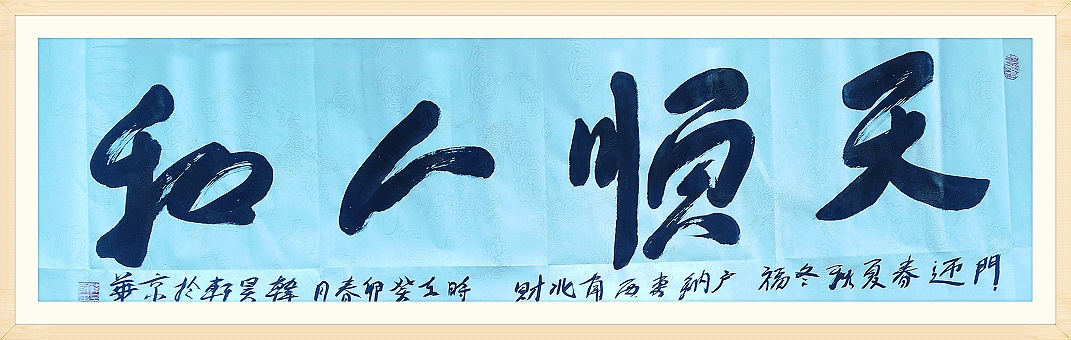 天順人和
門迎春夏秋冬福 户納東西南北財 時在癸卯春月韓昊軒於京華